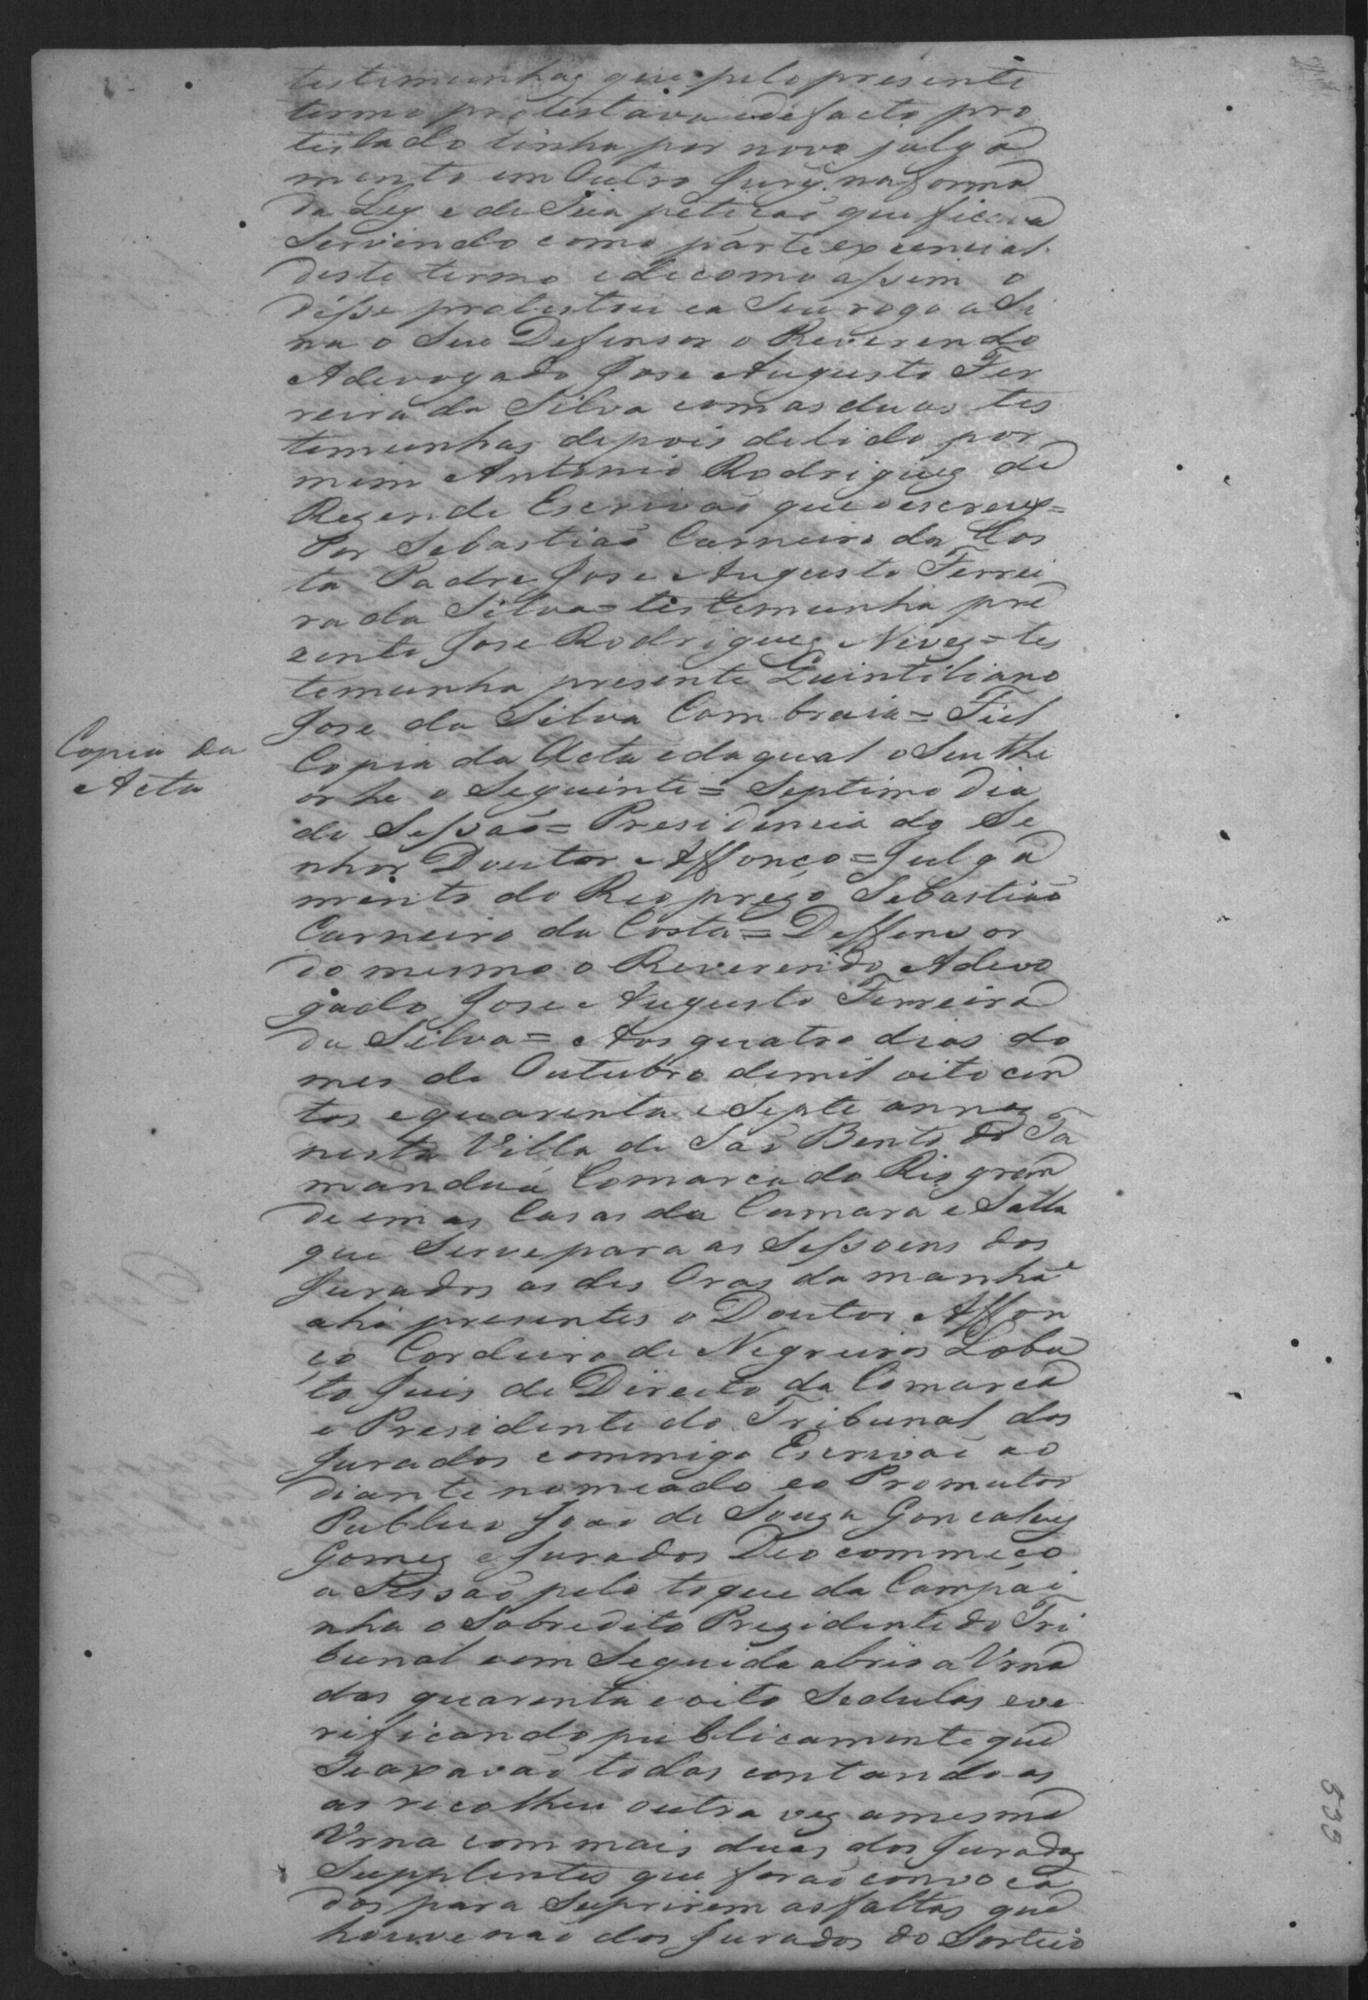 testemunhas que pelo presente
termo protestava edefacto pro
testado tinha por novo julga
mento em Outro Jury na forma
da Ley e de Sua petição que ficava
Servindo como parte expencial
deste termo edecomo assim o
disse protestou ea Seu rogo aSi
na o Seu Defensor o Reverendo
Adevogado Jose Augusto Fer
reira da Silva com as duas tes
temunhas depois delido por
mim Antonio Rodrigues de
Rezende Escrivão que oescrevy=
Por Sebastião Carneiro da Cos
ta Padre Jose Augusto Ferrei
ra da Silva= testemunha pre
zente Jose Rodrigues Neves= tes
temunha presente Quintiliano
Jose da Silva Cambraia= Fiel
Copia da
Acta
Copia da Acta edaqual o Seu the
or he o Seguinte= Septimo dia
de Sessão= Presidencia do Se
nhor Doutor Affonço= Julga
mento do Reo prezo Sebastião
Carneiro da Costa= Deffensor
do mesmo o Reverendo Adevo
gado Jose Augusto Ferreira
da Silva= Aos quatro dias do
mes de Outubro demil oito cen
tos equarenta e Septe annos
nesta Villa de São Bento do Ta
manduá Comarca do Rio gran
de em as Casas da Camara e Salla
que Serve para as Sessoens dos
Jurados as des Oras da manhã
ahi presentes o Doutor Affon
ço Cordeiro de Negreiros Loba
to Juis de Direito da Comarca
e Presidente do Tribunal dos
Jurados commigo Escrivão ao
diante nomeado eo Promutor
Publico João de Souza Goncalves
Gomes e Jurados Deo commeço
a Sessão pelo toque da Campai
nha o Sobredito Prezidente do Tri
bunal eem Seguida abrio a Vrna
das quarenta e oito Sedulas eve
rificando publicamente que
Seaxavão todas contando as
as recolheu outra vez amesma
Vrna com mais duas dos Jurados
Supplentes que forão convoca
dos para Suprirem as faltas que
houverão dos Jurados do Sorteio
533